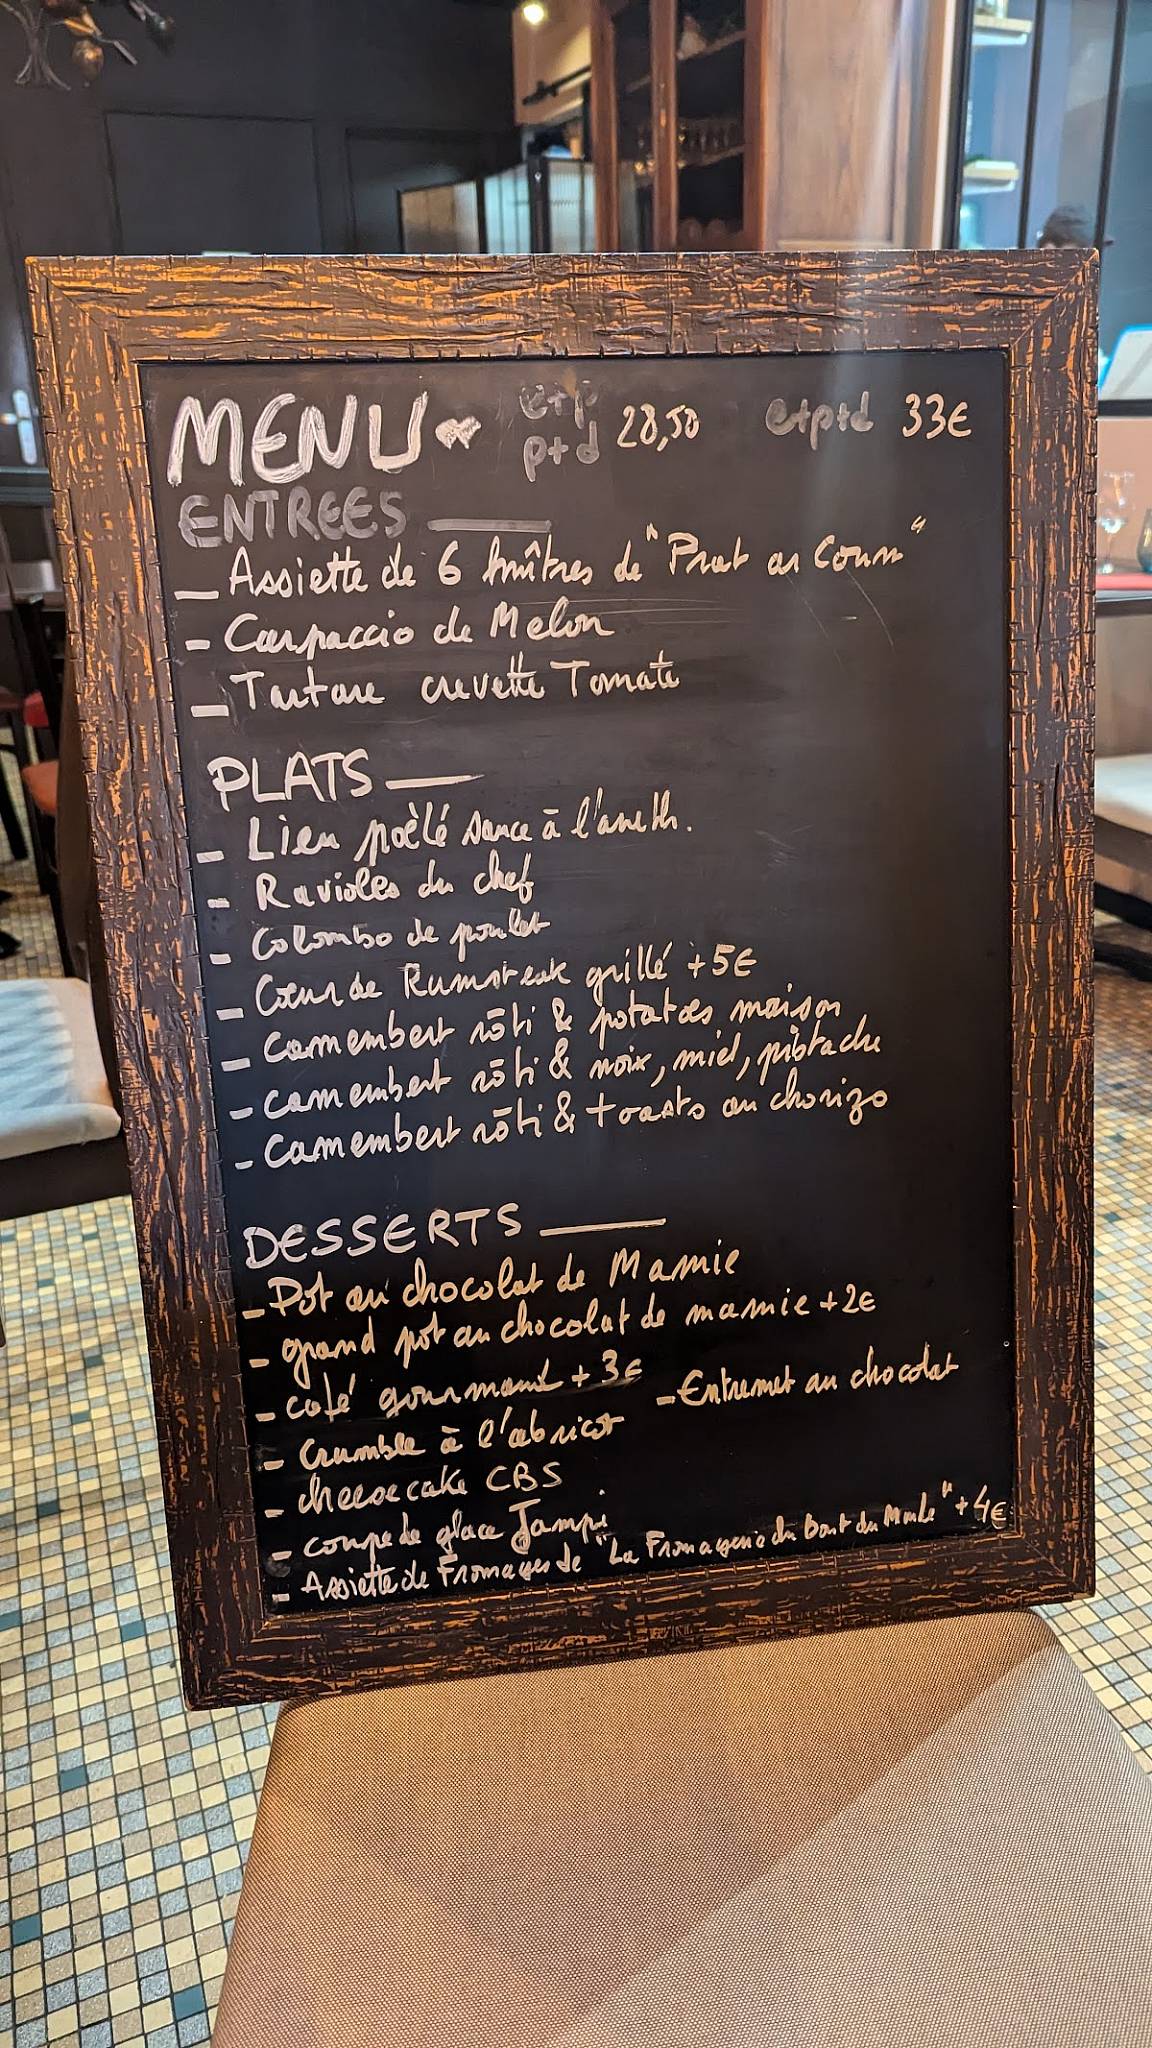 MENU e+p p+d 28,50 e+p+d 33€
ENTREES
- Assiette de 6 huîtres de "Prat ar Coum"
- Carpaccio de Melon
- Tartare crevette Tomate
PLATS
- Lieu poêlé sauce à l'aneth.
- Ravioles du chef
- Colombo de poulet
- Cœur de Rumsteak grillé +5€
- Camembert rôti & potatoes maison
- Camembert rôti & noix, miel, pistache
- Camembert rôti & toasts au chorizo
DESSERTS
- Pot au chocolat de Mamie
- grand pot au chocolat de mamie +2€
- café gourmand + 3€
- Entremet au chocolat
- Crumble à l'abricot
- cheesecake CBS
- coupe de glace Jampi
- Assiette de Fromages de "La Fromagerie du Bout du Monde" +4€